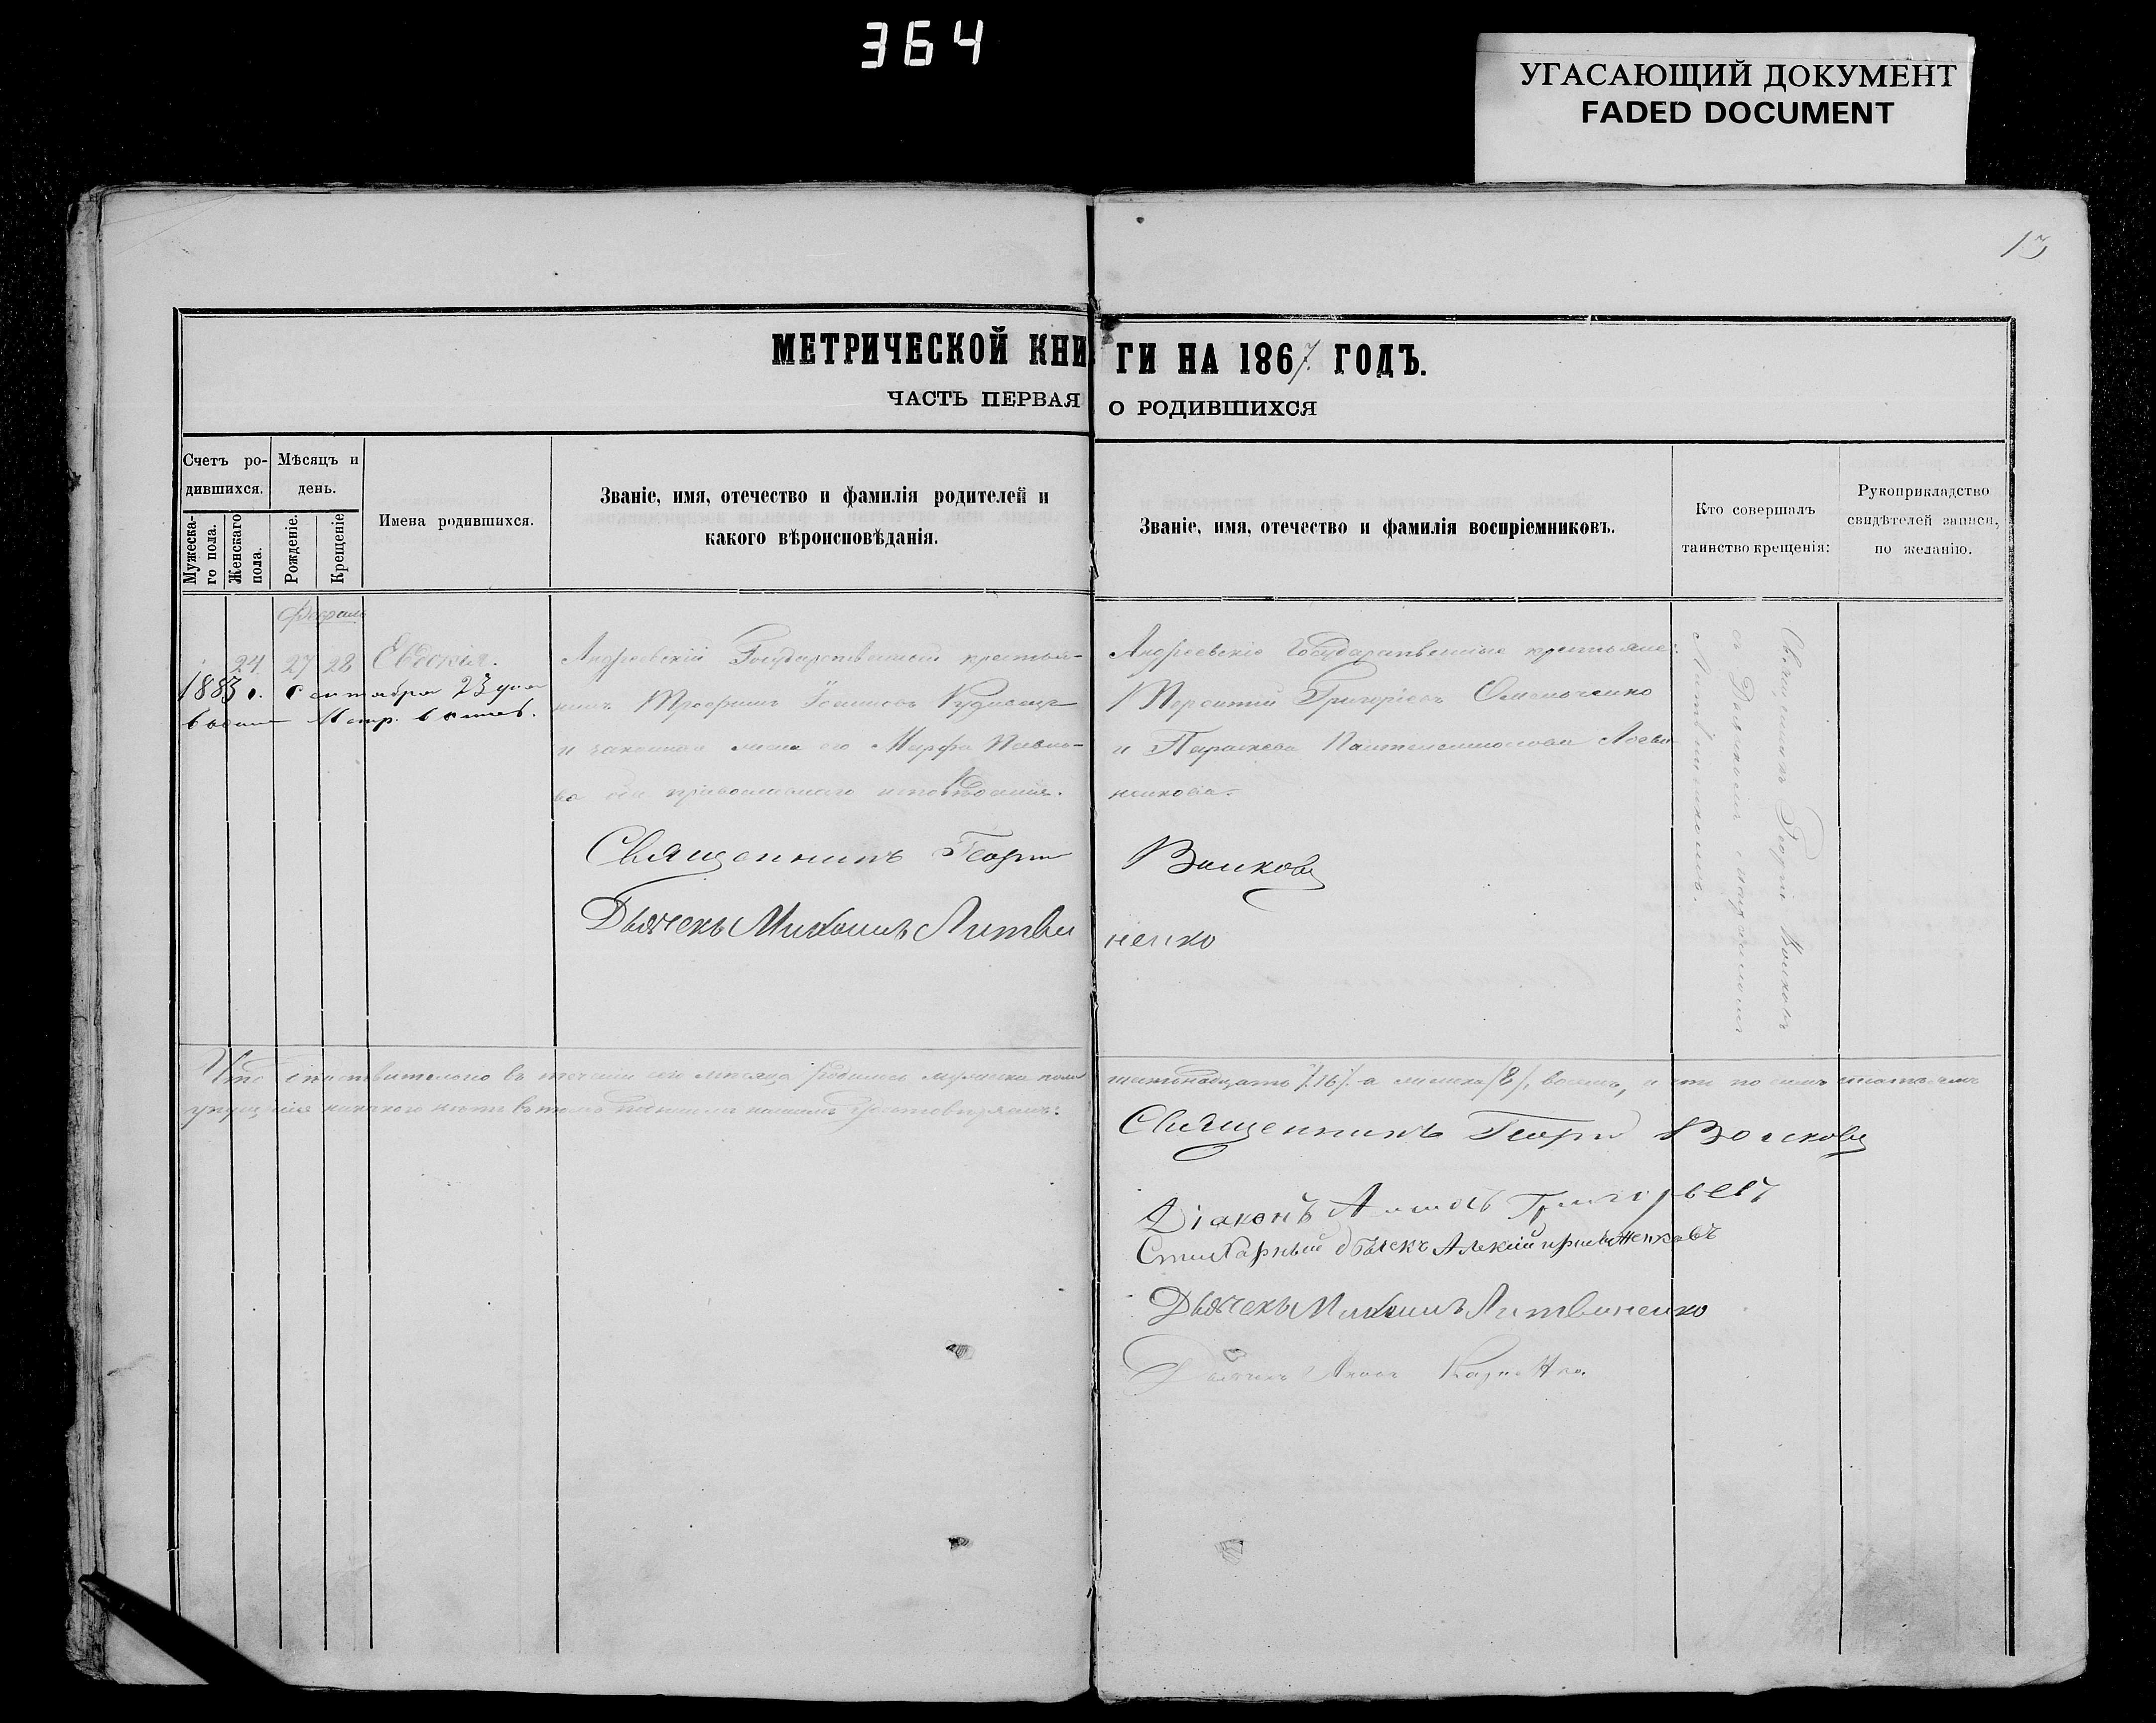 364
УГАСАЮЩИЙ ДОКУМЕНТ
FADED DOCUMENT
13
МЕТРИЧЕСКОЙ КНИГИ НА 1867 ГОДЪ.
ЧАСТЬ ПЕРВАЯ О РОДИВШИХСЯ
Счетъ ро-
дившихся.
Мужеска-
го пола.
Женскаго
пола.
Мѣсяцъ и
день.
Рожденіе.
Крещеніе
Имена родившихся.
Званіе, имя, отечество и фамилія родителей и
какого вѣроисповѣданія.
Званіе, имя, отечество и фамилія воспріемниковъ.
Кто совершалъ
таинство крещенія:
Рукоприкладство
свидѣтелей записи,
по желанію.
Февраль
24 27 28 Евдокія.
1883 г. Сентября 23 дня
Андреевскій Государственный крестья-
нинъ Трофимъ Іоанновъ
и законная жена его Марфа Павло-
ва оба православнаго исповѣданія.
Андреевскіе Государственные крестьяне:
Терентій Григоріевъ Омельченко
и Параскева Пантелеимонова Логви-
ненкова.
Священникъ Георгій Волковъ
съ Дьячкомъ
Литвиненкомъ.
Священникъ Георгій Волковъ
Дьячекъ Михаилъ Литвиненко
Что дѣйствительно въ теченіи сего мѣсяца родилось мужеска пола шестнадцать /16/ а женска /8/, восемъ, и что по симъ статьямъ
никакого нѣтъ въ томъ нашимъ удостовѣряемъ:
Священникъ Георгій Волковъ
Діаконъ Григорьевъ
Стихарный дьячекъ Алексій
Дьячекъ Михаилъ Литвиненко
Дьячекъ